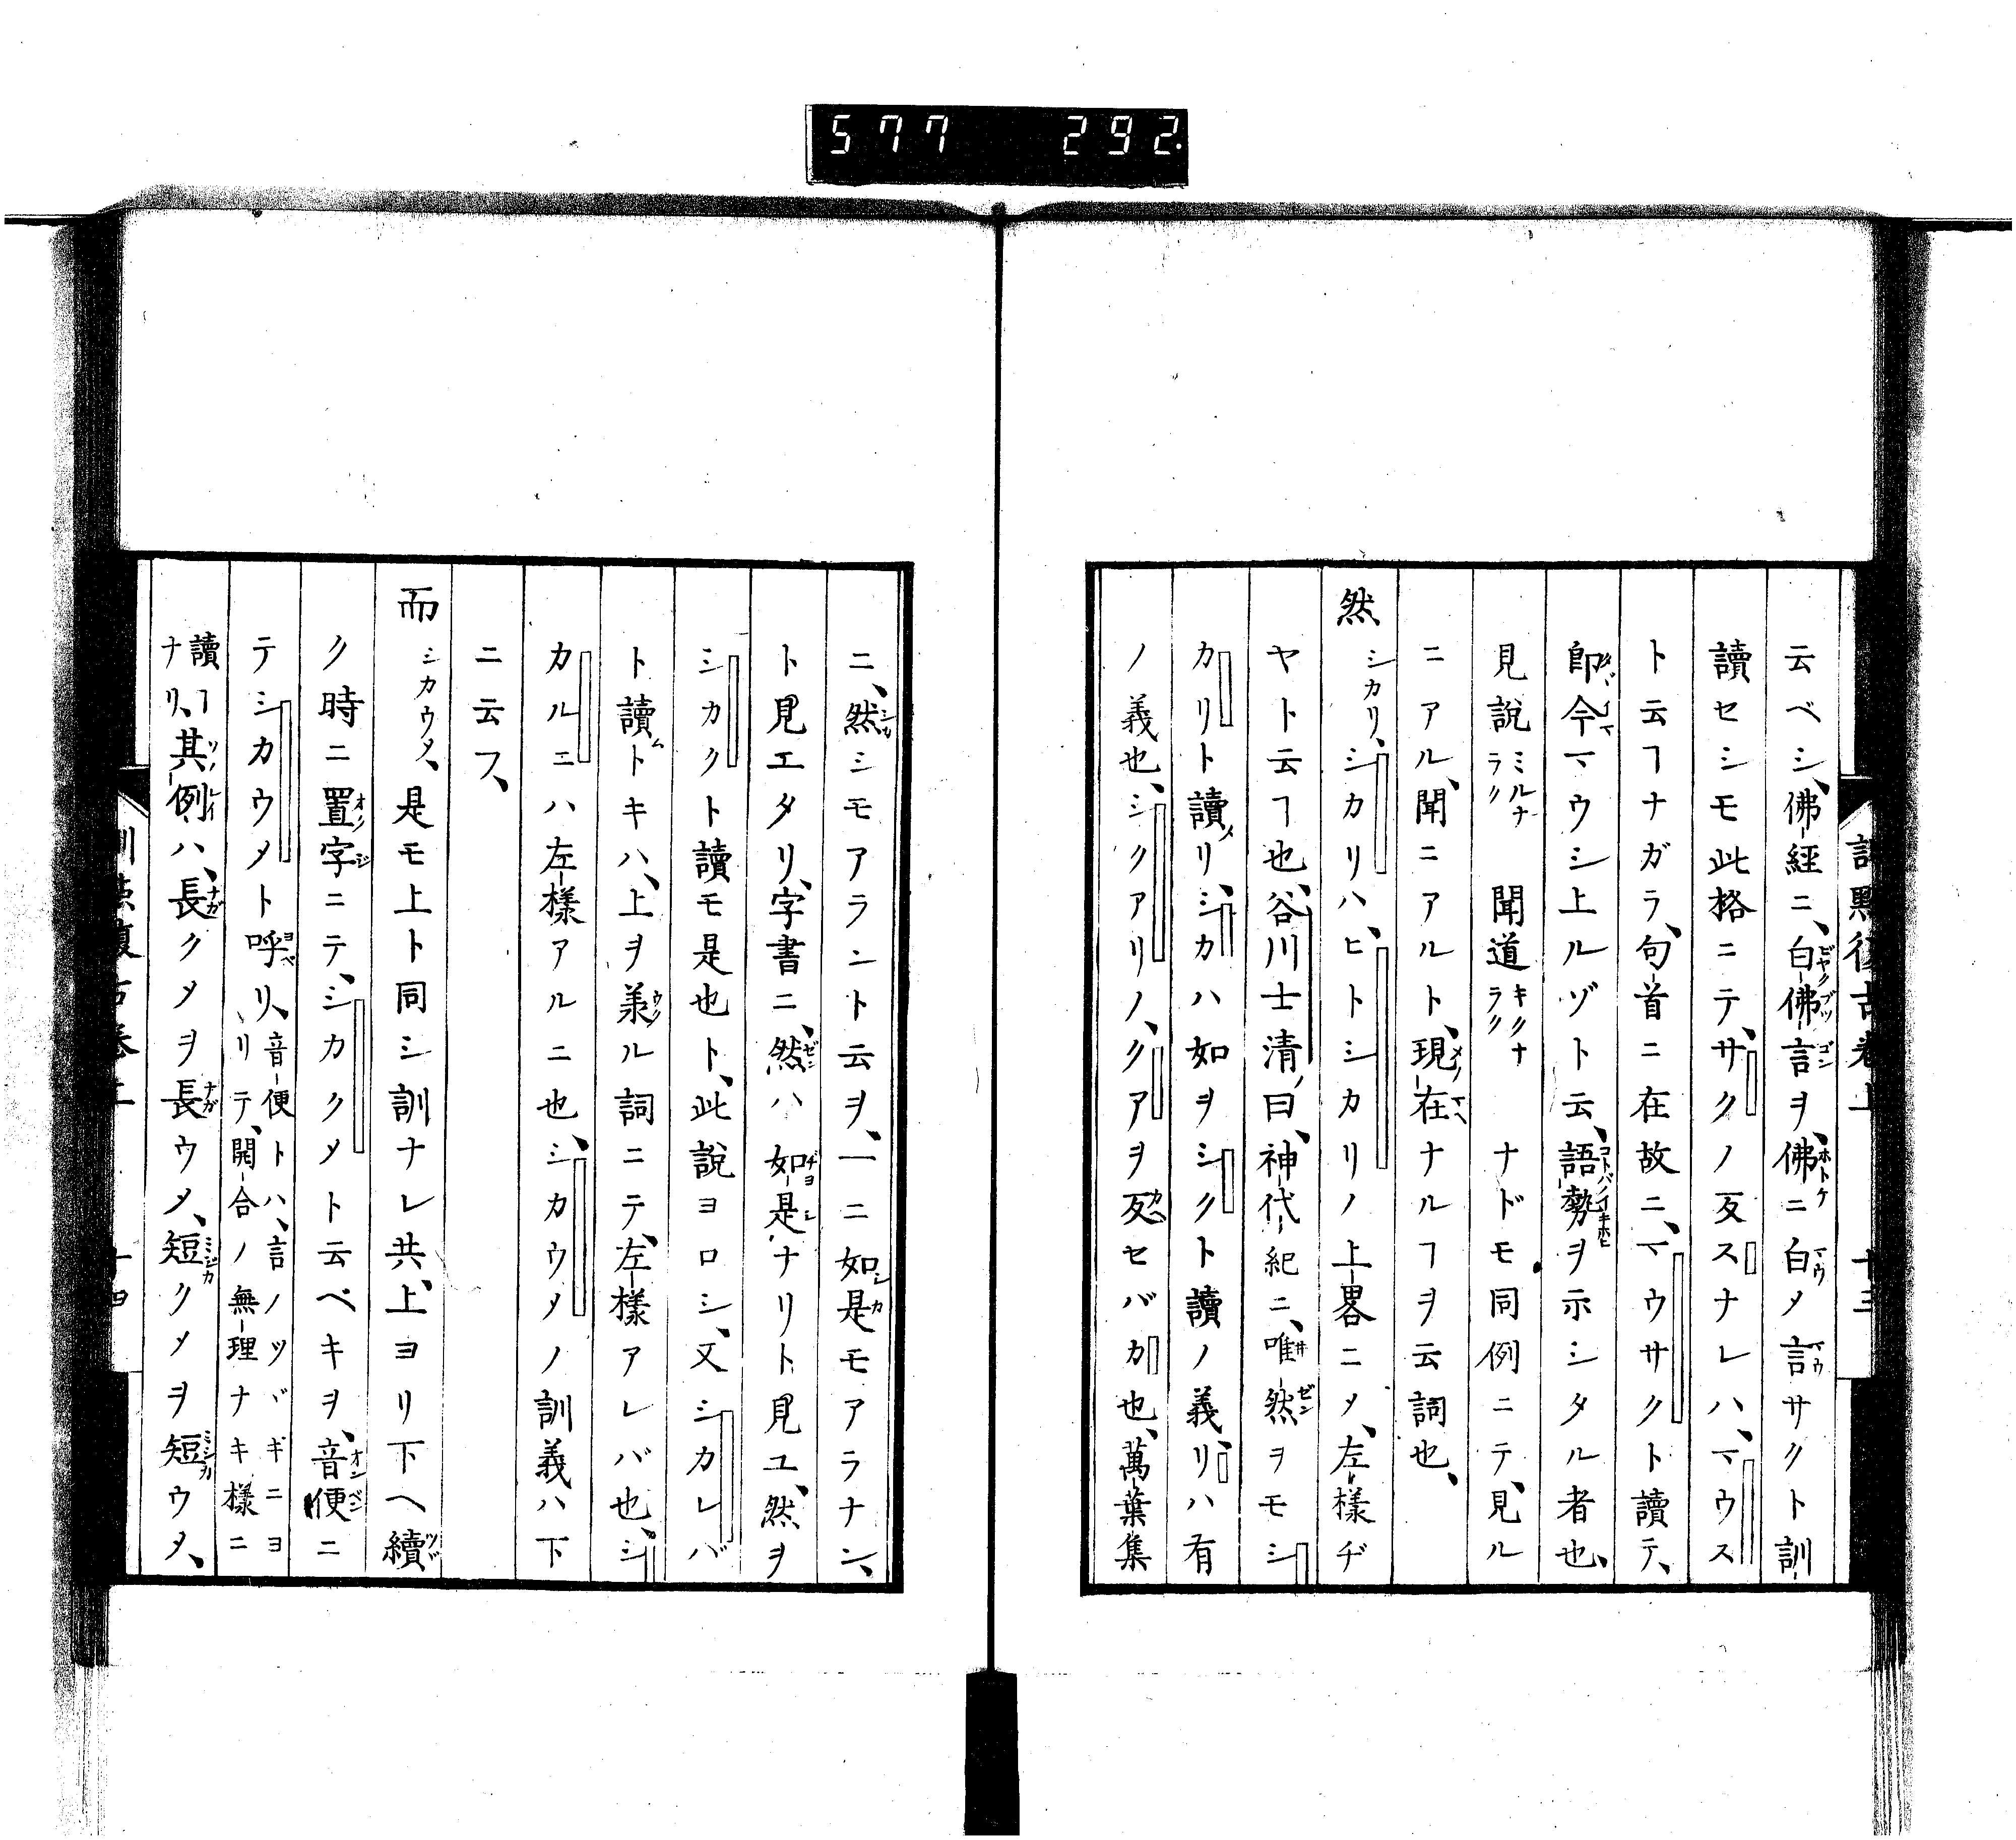 577 292.
云ベシ、佛經ニ、白佛言ヲ、佛ニ白メ言サクト訓
讀セシモ此格ニテ、サクノ反スナレハ、マウス
ト云ヿナガラ、句首ニ在故ニ、マウサクト讀テ、
即今マウシ上ルゾト云、語勢ヲ示シタル者也、
見說ミルナラク 聞道キクナラク ナドモ同例ニテ、見ル
ニアル、聞ニアルト、現在ナルヿヲ云詞也、
然シカリ、シカリハ、ヒトシカリノ上畧ニメ、左樣ヂ
ヤト云ヿ也、谷川士清曰、神代紀ニ、唯然ヲモシ
カリト讀リ、シカハ如ヲシクト讀ノ義、リハ有
ノ義也、シクアリノ、クアヲ反セバカ也、萬葉集
ニ、然シモアラント云ヲ、一ニ如是モアラナン、
ト見エタリ、字書ニ、然ハ如是ナリト見ユ、然ヲ
シカクト讀モ是也ト、此說ヨロシ、又シカレバ
ト讀トキハ、上ヲ羕ル詞ニテ、左樣アレバ也、シ
カルニハ左樣アルニ也、シカウメノ訓義ハ下
ニ云フ、
而シカウメ、是モ上ト同シ訓ナレ共、上ヨリ下ヘ續
ク時ニ置字ニテ、シカクメト云ベキヲ、音便ニ
テシカウメト呼リ、音便トハ、言ノツヾギニヨリテ、開合ノ無理ナキ樣ニ
讀ヿナリ、其例ハ、長クメヲ長ウメ、短クメヲ短ウメ、